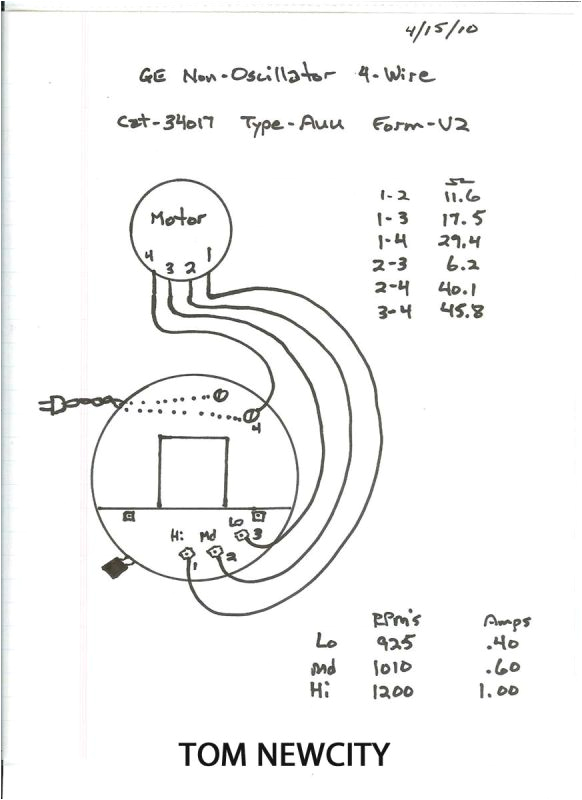 4/15/10
GE Non-Oscillator 4-Wire
Cat-34017 Type-AUU Form-V2
Ω
1-2 11.6
1-3 17.5
1-4 29.4
2-3 6.2
2-4 40.1
3-4 45.8
Motor
4 3 2 1
4
Hi Md Lo
1 2 3
RPM's Amps
Lo 925 .40
Md 1010 .60
Hi 1200 1.00
TOM NEWCITY